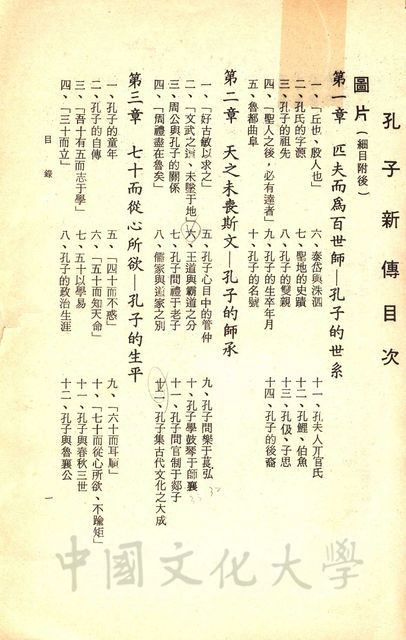 孔子新傳目次
圖片（細目附後）
第一章　匹夫而為百世師—孔子的世系
一、「丘也、殷人也」
二、孔氏的字源
三、孔子的祖先
四、「聖人之後，必有達者」
五、魯都曲阜
六、泰岱與洙泗
七、聖地的史蹟
八、孔子的雙親
九、孔子的生卒年月
十、孔子的名號
十一、孔夫人亓官氏
十二、孔鯉、伯魚
十三、孔伋、子思
十四、孔子的後裔
第二章　天之未喪斯文—孔子的師承
一、「好古敏以求之」
二、「文武之道、未墜于地」
三、周公與孔子的關係
四、「周禮盡在魯矣」
五、孔子心目中的管仲
六、王道與霸道之分
七、孔子問禮于老子
八、儒家與道家之別
九、孔子問樂于萇弘
十、孔子學鼓琴于師襄
十一、孔子問官制于郯子
十二、孔子集古代文化之大成
第三章　七十而從心所欲—孔子的生平
一、孔子的童年
二、孔子的自傳
三、「吾十有五而志于學」
四、「三十而立」
五、「四十而不惑」
六、「五十而知天命」
七、五十以學易
八、孔子的政治生涯
九、「六十而耳順」
十、「七十而從心所欲、不踰矩」
十一、孔子與春秋三世
十二、孔子與魯襄公
目錄
一
中國文化大學